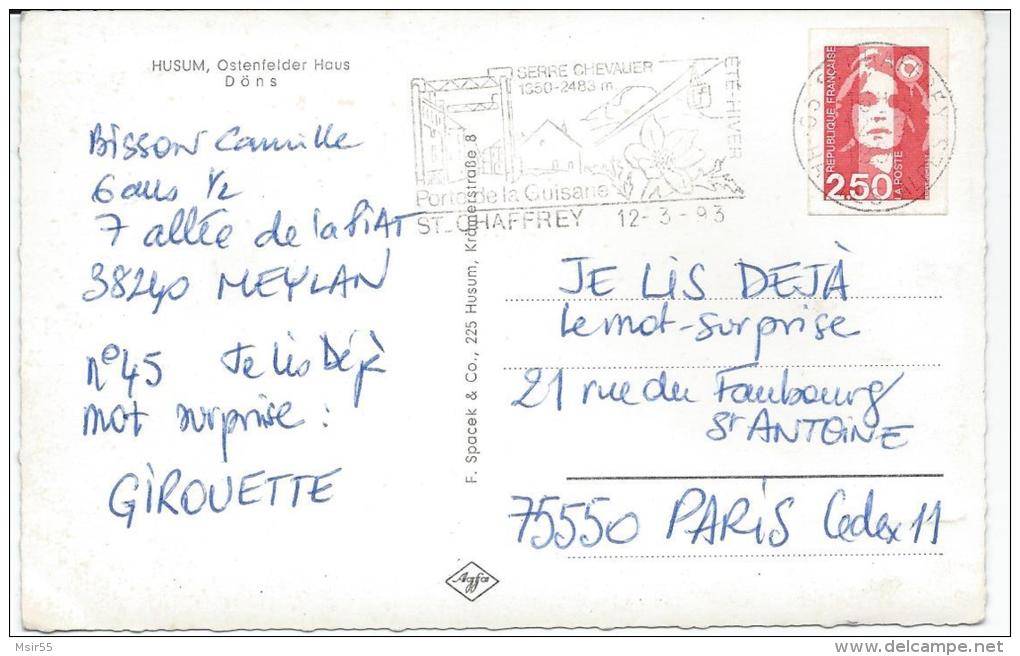 HUSUM, Ostenfelder Haus
Döns
Bisson Camille
6 ans 1/2
7 allée de la PIAT
38240 MEYLAN
n°45 Je lis Déjà
mot surprise :
GIROUETTE
F. Spacek & Co., 225 Husum, Krämerstraße 8
Agfa
SERRE CHEVALIER
1350-2483 m
ETE-HIVER
Porte de la Guisane
ST-CHAFFREY 12-3-93
REPUBLIQUE FRANÇAISE
2,50
LA POSTE
JE LIS DEJÀ
le mot-surprise
21 rue du Faubourg
St ANTOINE
75550 PARIS Cedex 11
Msir55
www.delcampe.net